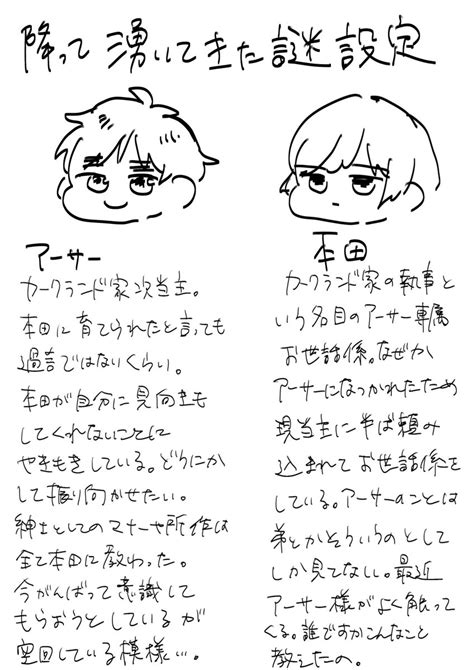 降って湧いてきた謎設定
アーサー
カークランド家次当主。
本田に育てられたと言っても
過言ではないくらい。
本田が自分に見向きも
してくれないことに
やきもきしている。どうにか
して振り向かせたい。
紳士としてのマナーや所作は
全て本田に教わった。
今がんばって意識して
もらおうとしているが
空回している模様…。
本田
カークランド家の執事と
いう名目のアーサー専属
お世話係。なぜか
アーサーになつかれたため
現当主に半ば頼み
込まれてお世話係を
している。アーサーのことは
弟とかそういうのとして
しか見てない。最近
アーサー様がよく触って
くる。誰ですかこんなこと
教えたの。